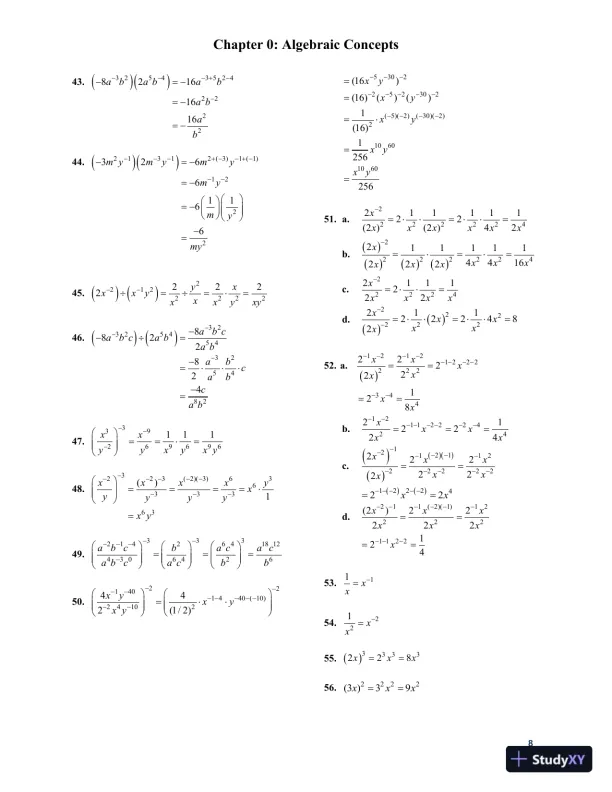 Chapter 0: Algebraic Concepts
43. (−8a⁻³b²)(2a⁵b⁻⁴) = −16a⁻³⁺⁵b²⁻⁴
= −16a²b⁻²
= −16a²/b²
44. (−3m²y⁻¹)(2m⁻³y⁻¹) = −6m²⁺⁽⁻³⁾y⁻¹⁺⁽⁻¹⁾
= −6m⁻¹y⁻²
= −6(1/m)(1/y²)
= −6/my²
45. (2x⁻²) ÷ (x⁻¹y²) = 2/x² ÷ y²/x = 2/x² · x/y² = 2/xy²
46. (−8a⁻³b²c) ÷ (2a⁵b⁴) = −8a⁻³b²c/2a⁵b⁴
= −8/2 · a⁻³/a⁵ · b²/b⁴ · c
= −4c/a⁸b²
47. (x³/y⁻²)⁻³ = x⁻⁹/y⁶ = 1/x⁹ · 1/y⁶ = 1/x⁹y⁶
48. (x⁻²/y)⁻³ = (x⁻²)⁻³/y⁻³ = x⁽⁻²⁾⁽⁻³⁾/y⁻³ = x⁶/y⁻³ = x⁶ · y³/1
= x⁶y³
49. (a⁻²b⁻¹c⁻⁴/a⁴b⁻³c⁰)⁻³ = (b²/a⁶c⁴)⁻³ = (a⁶c⁴/b²)³ = a¹⁸c¹²/b⁶
50. (4x⁻¹y⁻⁴⁰/2⁻²x⁴y⁻¹⁰)⁻² = (4/(1/2)² · x⁻¹⁻⁴ · y⁻⁴⁰⁻⁽⁻¹⁰⁾)⁻²
= (16x⁻⁵y⁻³⁰)⁻²
= (16)⁻²(x⁻⁵)⁻²(y⁻³⁰)⁻²
= 1/(16)² · x⁽⁻⁵⁾⁽⁻²⁾y⁽⁻³⁰⁾⁽⁻²⁾
= 1/256 x¹⁰y⁶⁰
= x¹⁰y⁶⁰/256
51. a. 2x⁻²/(2x)² = 2 · 1/x² · 1/(2x)² = 2 · 1/x² · 1/4x² = 1/2x⁴
b. (2x)⁻²/(2x)² = 1/(2x)² · 1/(2x)² = 1/4x² · 1/4x² = 1/16x⁴
c. 2x⁻²/2x² = 2 · 1/x² · 1/2x² = 1/x⁴
d. 2x⁻²/(2x)⁻² = 2 · 1/x² · (2x)² = 2 · 1/x² · 4x² = 8
52. a. 2⁻¹x⁻²/(2x)² = 2⁻¹x⁻²/2²x² = 2⁻¹⁻²x⁻²⁻²
= 2⁻³x⁻⁴ = 1/8x⁴
b. 2⁻¹x⁻²/2x² = 2⁻¹⁻¹x⁻²⁻² = 2⁻²x⁻⁴ = 1/4x⁴
c. (2x⁻²)⁻¹/(2x)⁻² = 2⁻¹x⁽⁻²⁾⁽⁻¹⁾/2⁻²x⁻² = 2⁻¹x²/2⁻²x⁻²
= 2⁻¹⁻⁽⁻²⁾x²⁻⁽⁻²⁾ = 2x⁴
d. (2x⁻²)⁻¹/2x² = 2⁻¹x⁽⁻²⁾⁽⁻¹⁾/2x² = 2⁻¹x²/2x²
= 2⁻¹⁻¹x²⁻² = 1/4
53. 1/x = x⁻¹
54. 1/x² = x⁻²
55. (2x)³ = 2³x³ = 8x³
56. (3x)² = 3²x² = 9x²
8
StudyXY